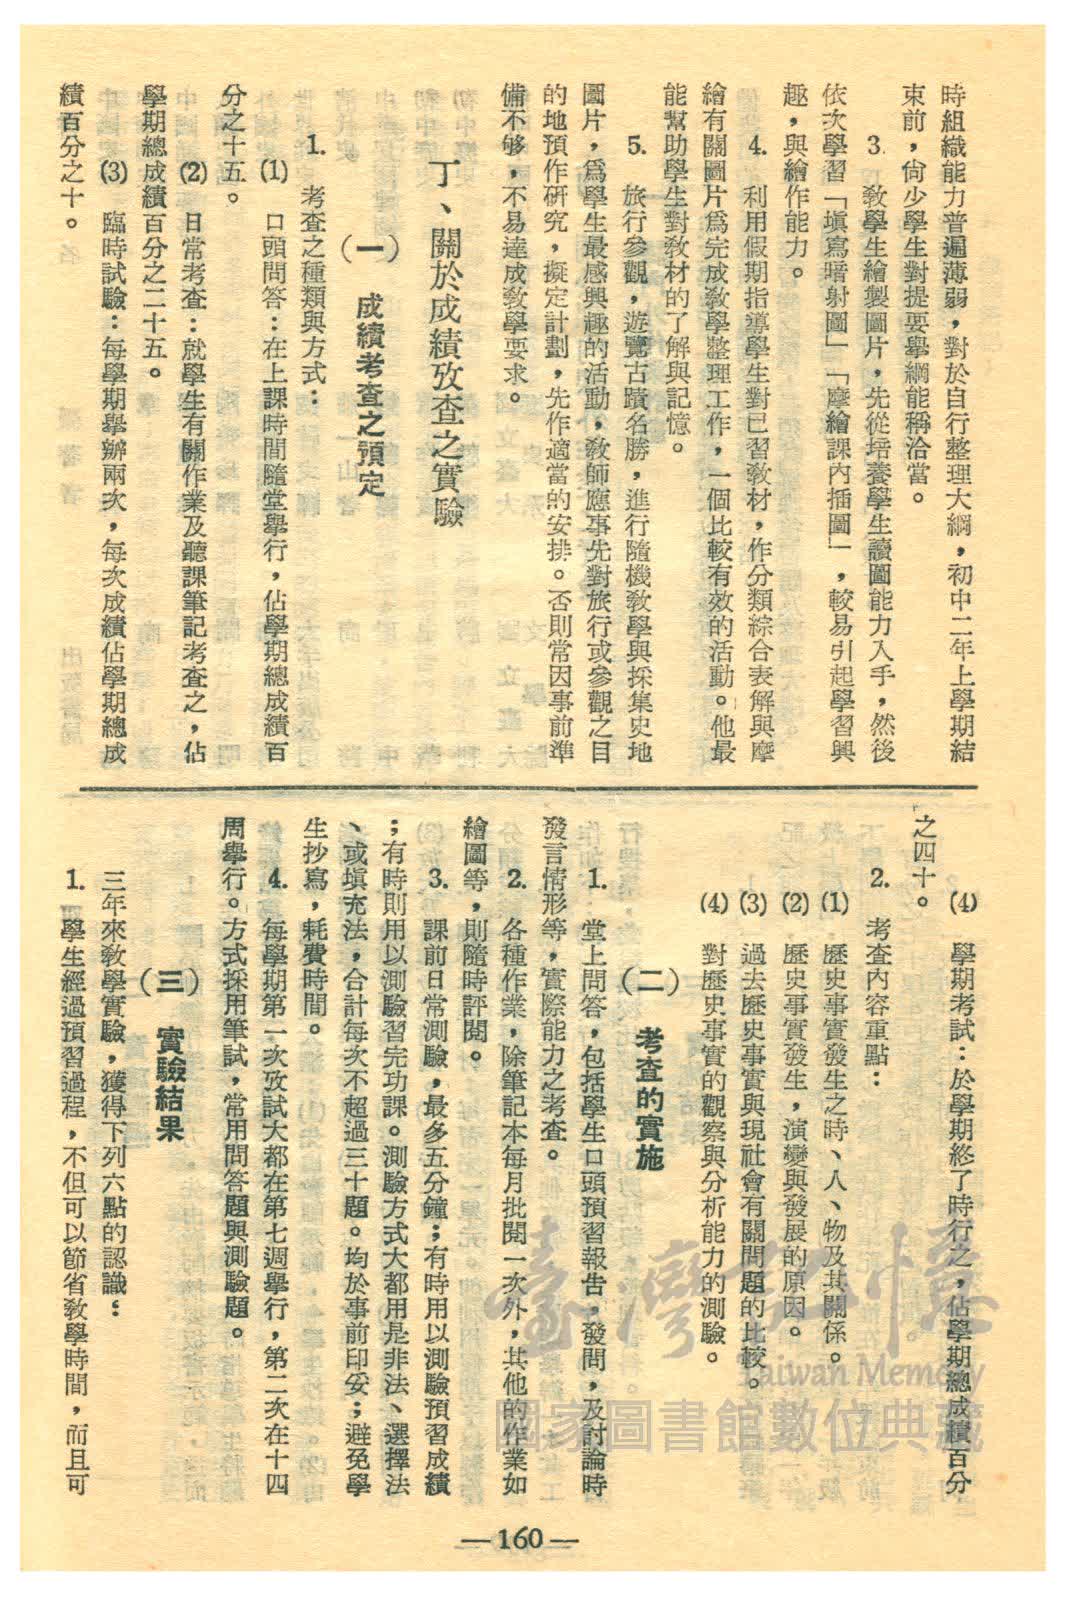 時組織能力普遍薄弱，對於自行整理大綱，初中二年上學期結
束前，尙少學生對提要舉綱能稱洽當。
3. 敎學生繪製圖片，先從培養學生讀圖能力入手，然後
依次學習「塡寫暗射圖」「摩繪課內插圖」，較易引起學習興
趣，與繪作能力。
4. 利用假期指導學生對已習敎材，作分類綜合表解與摩
繪有關圖片爲完成敎學整理工作，一個比較有效的活動。他最
能幫助學生對敎材的了解與記憶。
5. 旅行參觀，遊覽古蹟名勝，進行隨機敎學與採集史地
圖片，爲學生最感興趣的活動，敎師應事先對旅行或參觀之目
的地預作硏究，擬定計劃，先作適當的安排。否則常因事前準
備不够，不易達成敎學要求。
丁、關於成績攷查之實驗
（一）　成績考查之預定
1. 考查之種類與方式：
(1) 口頭問答：在上課時間隨堂舉行，佔學期總成績百
分之十五。
(2) 日常考查：就學生有關作業及聽課筆記考查之，佔
學期總成績百分之二十五。
(3) 臨時試驗：每學期舉辦兩次，每次成績佔學期總成
績百分之十。
(4) 學期考試：於學期終了時行之，佔學期總成績百分
之四十。
2. 考查內容重點：
(1) 歷史事實發生之時、人、物及其關係。
(2) 歷史事實發生，演變與發展的原因。
(3) 過去歷史事實與現社會有關問題的比較。
(4) 對歷史事實的觀察與分析能力的測驗。
（二）　考查的實施
1. 堂上問答，包括學生口頭預習報告，發問，及討論時
發言情形等，實際能力之考查。
2. 各種作業，除筆記本每月批閱一次外，其他的作業如
繪圖等，則隨時評閱。
3. 課前日常測驗，最多五分鐘；有時用以測驗預習成績
；有時則用以測驗習完功課。測驗方式大都用是非法、選擇法
、或塡充法，合計每次不超過三十題。均於事前印妥；避免學
生抄寫，耗費時間。
4. 每學期第一次攷試大都在第七週舉行，第二次在十四
周舉行。方式採用筆試，常用問答題與測驗題。
（三）　實驗結果
三年來敎學實驗，獲得下列六點的認識：
1. 學生經過預習過程，不但可以節省敎學時間，而且可
—160—
臺灣記憶
Taiwan Memory
國家圖書館數位典藏